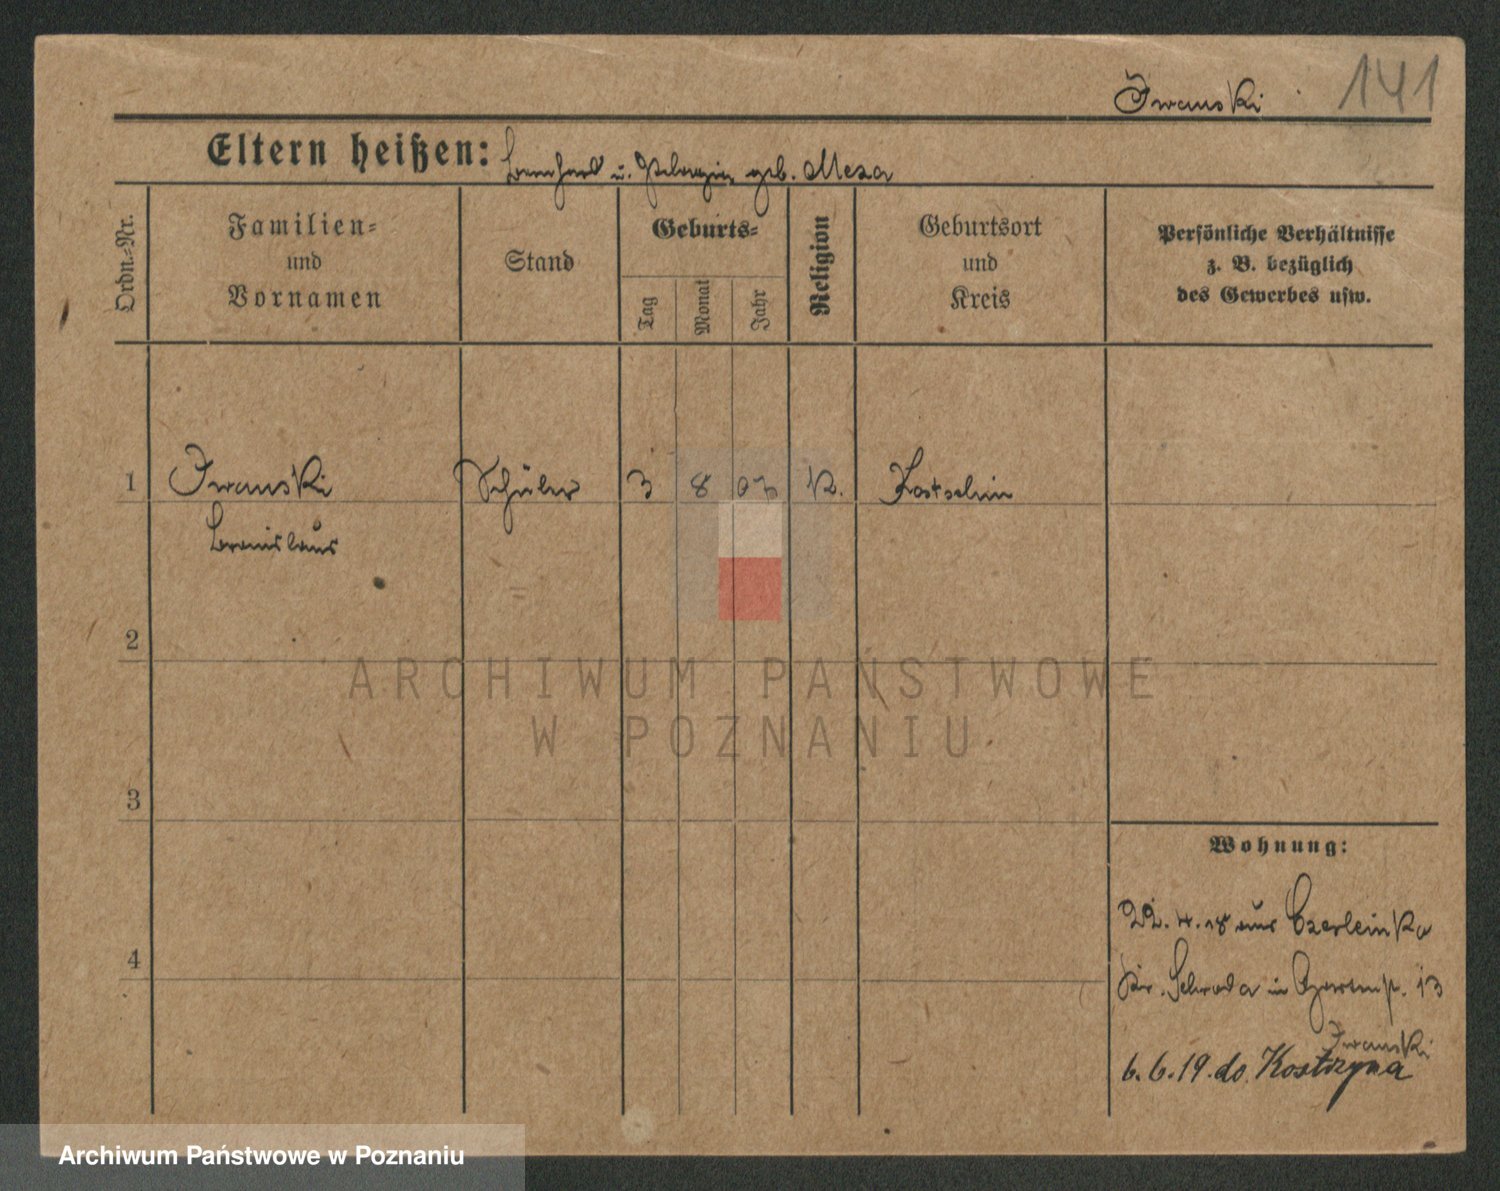 141
Iwanski
Eltern heißen: Bernhard u. Pelagia geb. Mexa
Ordn.-Nr.
Familien-
und
Vornamen
Stand
Geburts-
Tag
Monat
Jahr
Religion
Geburtsort
und
Kreis
Persönliche Verhältnisse
z. B. bezüglich
des Gewerbes usw.
1 Iwanski Schüler 3 8 03 K. Kostschin
Bronislaus
2
ARCHIWUM PAŃSTWOWE
W POZNANIU
3
Wohnung:
22. 4. 18 aus Czerleinko
4
Kr. Schroda in 13
Iwanski
6. 6. 19. do Kostrzyna
Archiwum Państwowe w Poznaniu